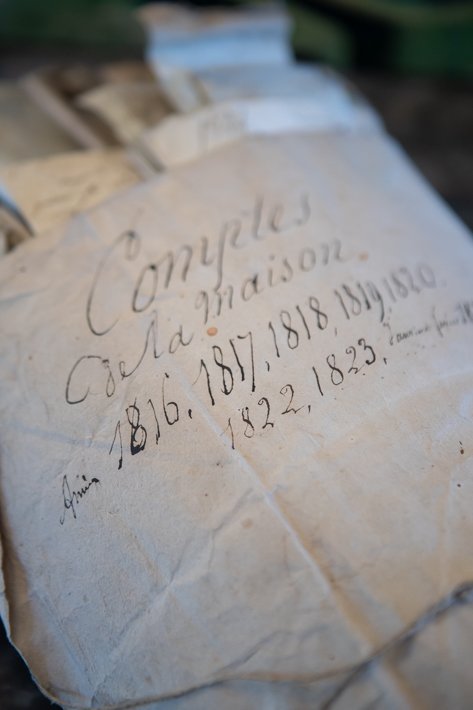 Comptes
de la maison.
1816, 1817, 1818, 1819, 1820
1822, 1823,